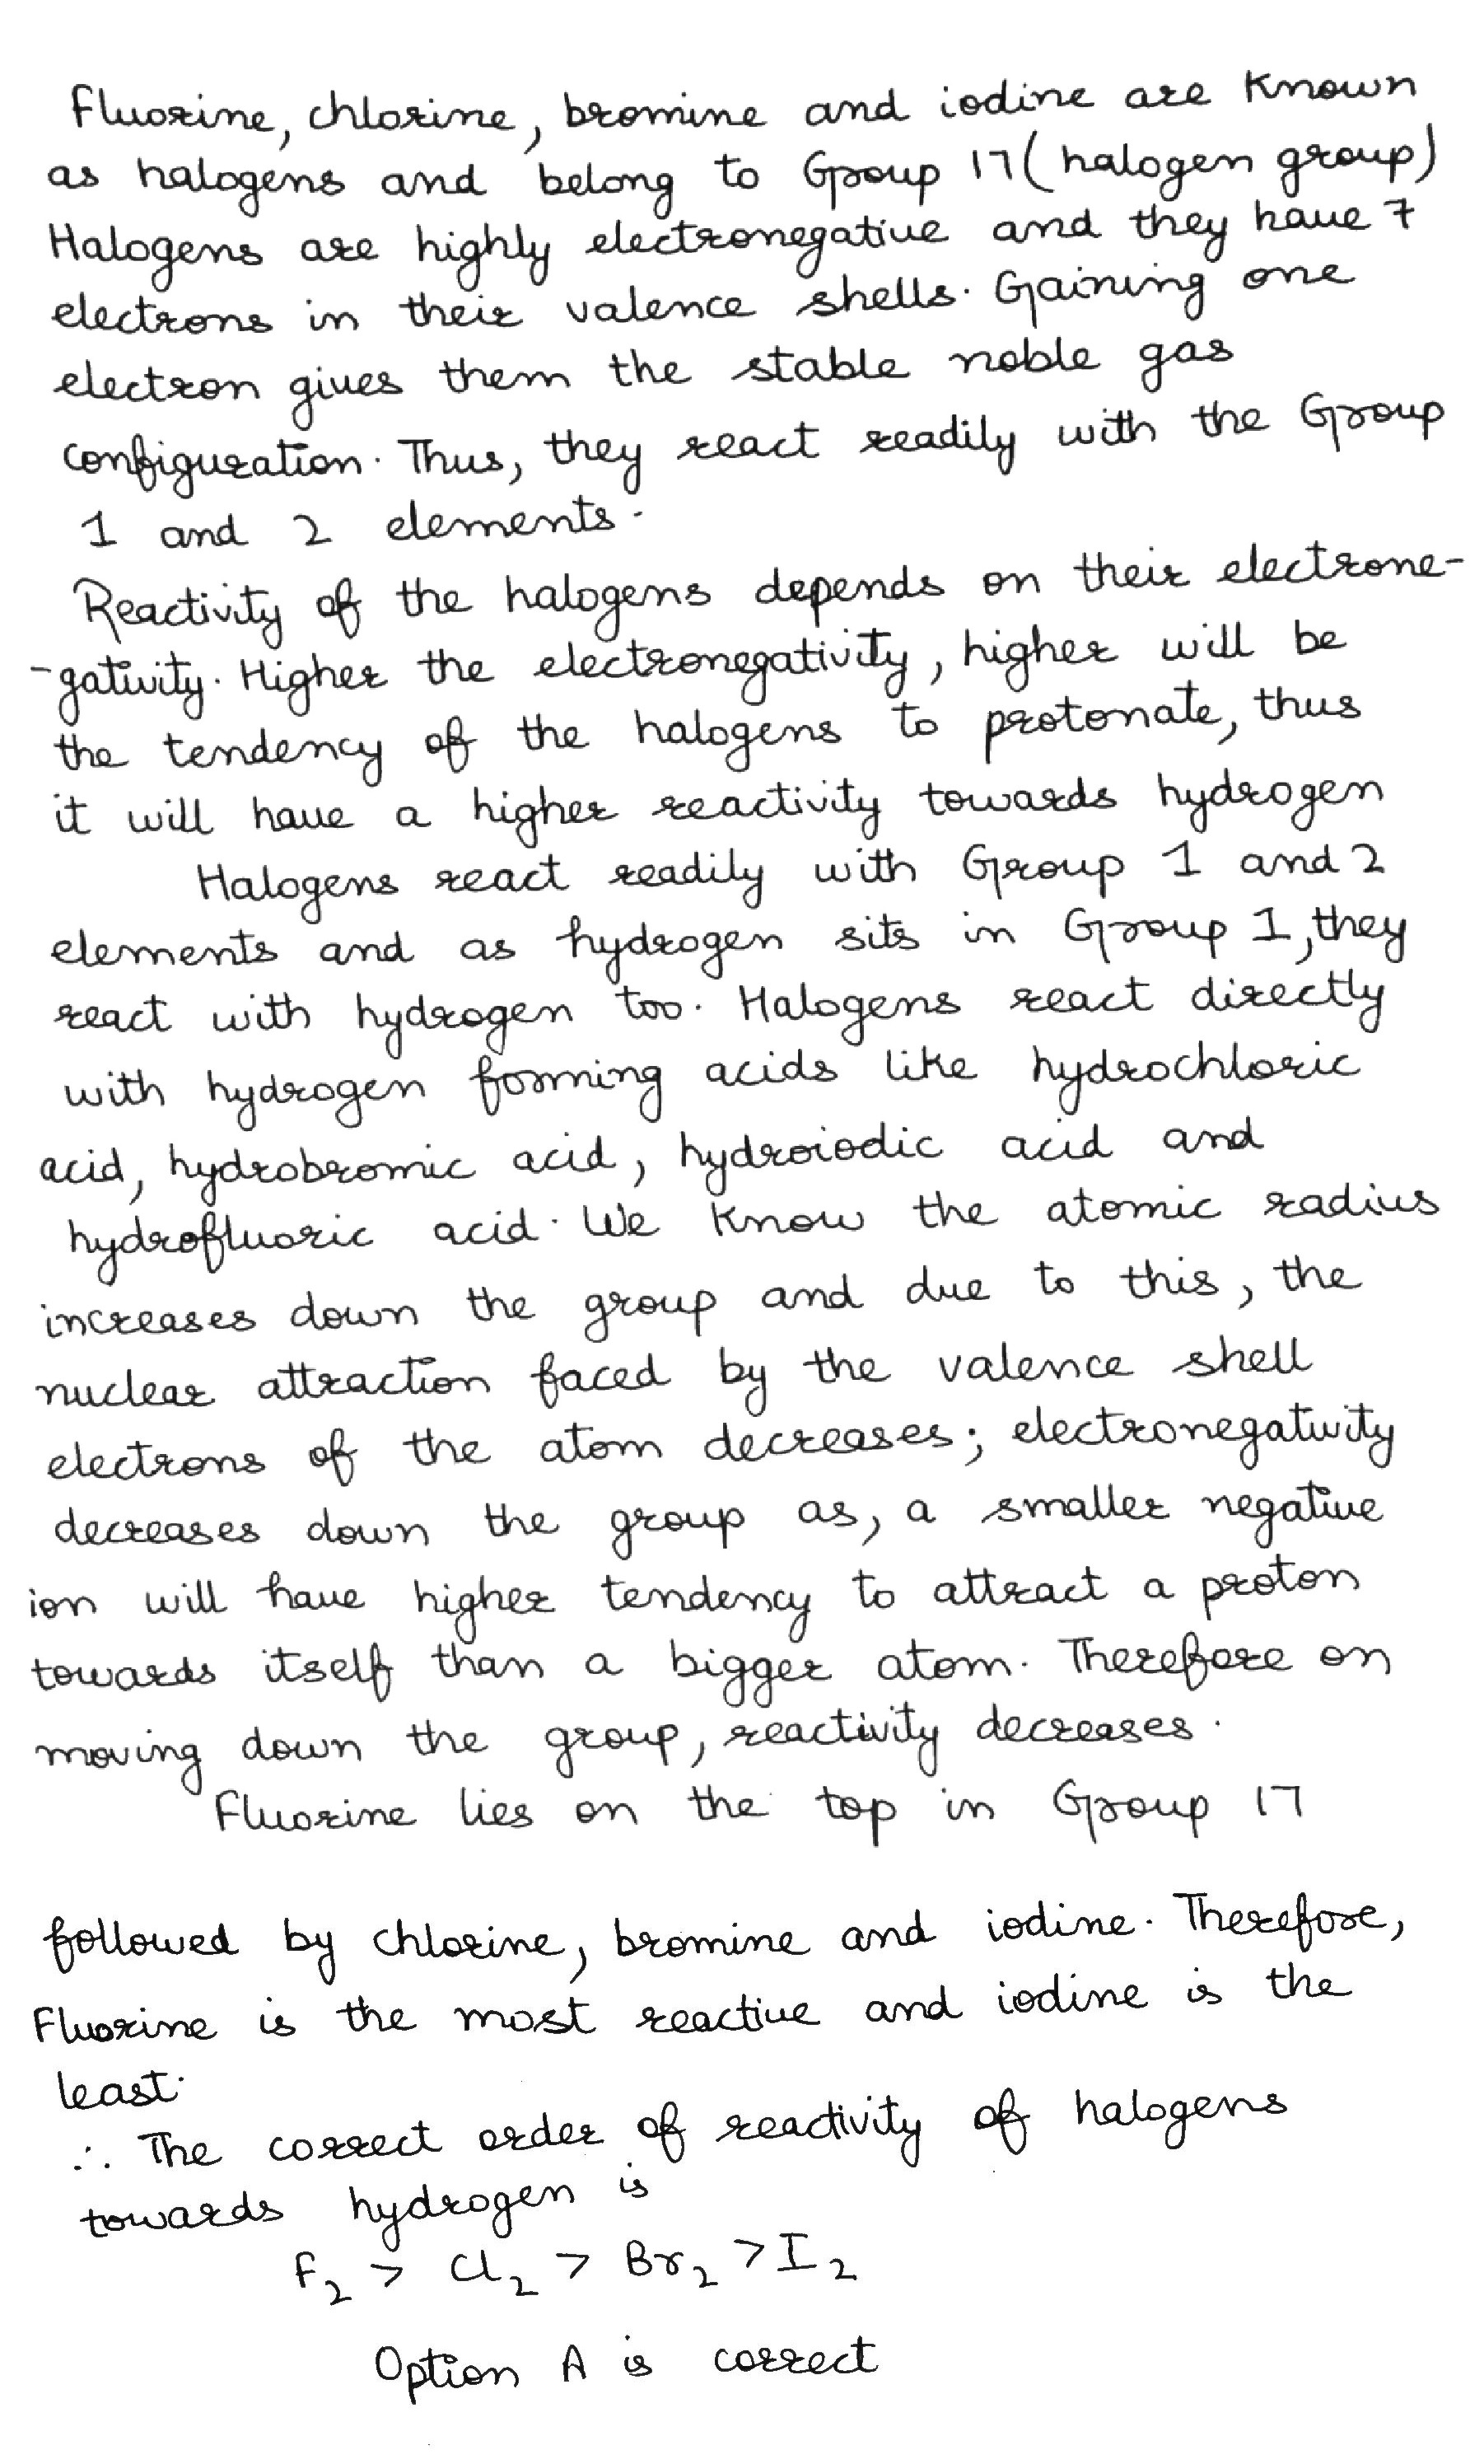 Fluorine, chlorine, bromine and iodine are known
as halogens and belong to Group 17 (halogen group)
Halogens are highly electronegative and they have 7
electrons in their valence shells. Gaining one
electron gives them the stable noble gas
configuration. Thus, they react readily with the Group
1 and 2 elements.
Reactivity of the halogens depends on their electrone-
-gativity. Higher the electronegativity, higher will be
the tendency of the halogens to protonate, thus
it will have a higher reactivity towards hydrogen
Halogens react readily with Group 1 and 2
elements and as hydrogen sits in Group 1, they
react with hydrogen too. Halogens react directly
with hydrogen forming acids like hydrochloric
acid, hydrobromic acid, hydroiodic acid and
hydrofluoric acid. We know the atomic radius
increases down the group and due to this, the
nuclear attraction faced by the valence shell
electrons of the atom decreases; electronegativity
decreases down the group as, a smaller negative
ion will have higher tendency to attract a proton
towards itself than a bigger atom. Therefore on
moving down the group, reactivity decreases.
Fluorine lies on the top in Group 17
followed by chlorine, bromine and iodine. Therefore,
Fluorine is the most reactive and iodine is the
least.
∴ The correct order of reactivity of halogens
towards hydrogen is
F₂ > Cl₂ > Br₂ > I₂
Option A is correct